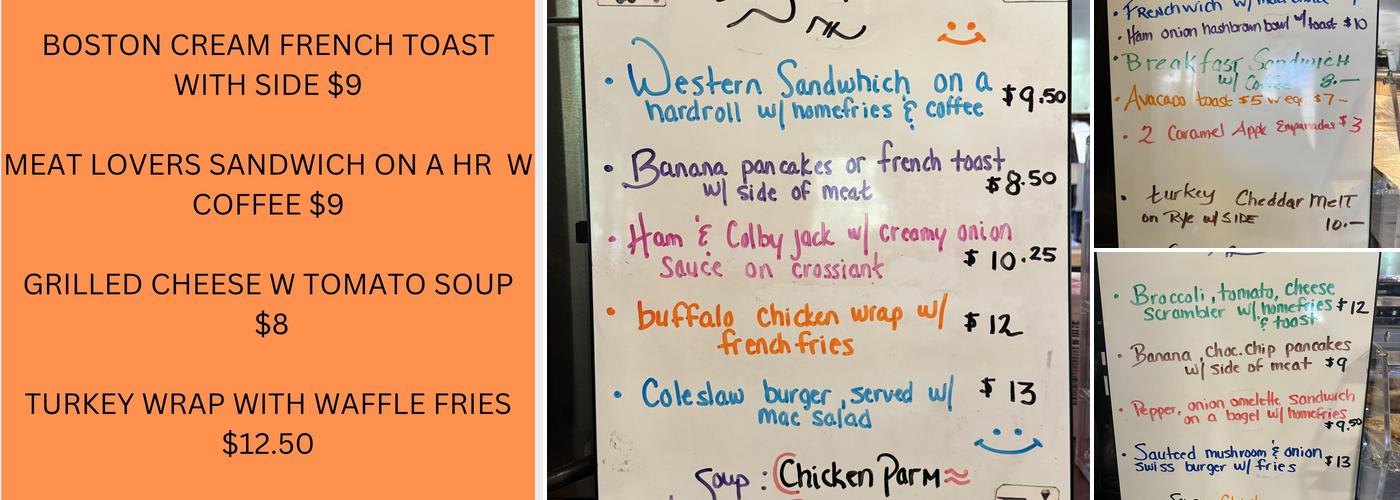 BOSTON CREAM FRENCH TOAST
WITH SIDE $9
MEAT LOVERS SANDWICH ON A HR W
COFFEE $9
GRILLED CHEESE W TOMATO SOUP
$8
TURKEY WRAP WITH WAFFLE FRIES
$12.50
• Western Sandwhich on a
hardroll w/ homefries & coffee $9.50
• Banana pancakes or french toast
w/ side of meat $8.50
• Ham & Colby jack w/ creamy onion
sauce on crossiant $10.25
• buffalo chicken wrap w/
french fries $12
• Coleslaw burger, served w/
mac salad $13
Soup: Chicken Parm
• Frenchwich w/
• Ham onion hashbrown bowl w/ toast $10
• Breakfast Sandwich
w/ Coffee 8.—
• Avacado toast $5 w egg $7-
• 2 Caramel Apple Empanadas $3
• turkey Cheddar Melt
on Rye w/ SIDE 10.—
• Broccoli, tomato, cheese
scrambler w/ homefries $12
& toast
• Banana, choc. chip pancakes
w/ side of meat $9
• Pepper, onion omelette sandwich
on a bagel w/ homefries
$9.50
• Sauteed mushroom & onion
swiss burger w/ fries $13